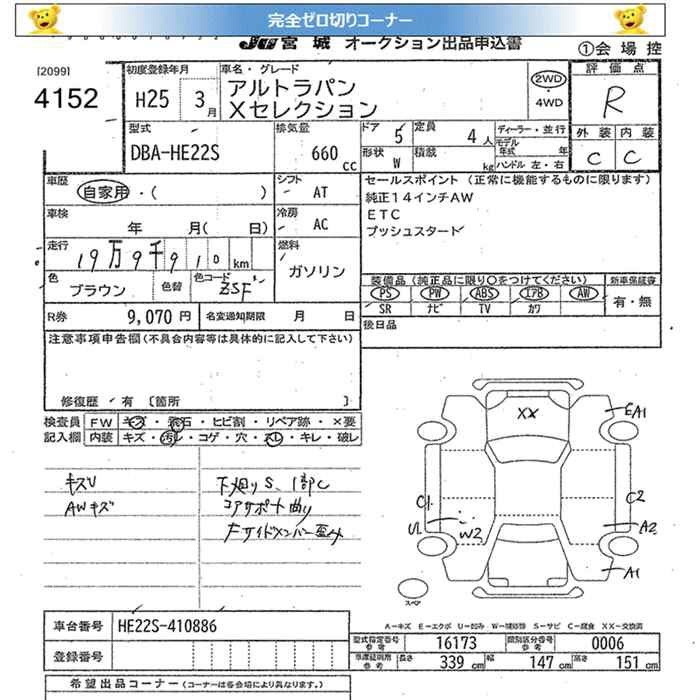 完全ゼロ切りコーナー
JU宮城 オークション出品申込書
①会場控
[2099]
4152
初度登録年月
H25 3月
車名・グレード
アルトラパン
Xセレクション
2WD
・
4WD
評価点
R
外装 内装
C C
型式
DBA-HE22S
排気量
660 CC
ドア 5
定員 4人
形状 W
積載 kg
ディーラー・並行
モデル年式 年
ハンドル 左・右
車歴
自家用・( )
シフト
AT
車検
年 月( 日)
冷房
AC
走行
19万9千910 km
燃料
ガソリン
色
ブラウン
色替
色コード
ZSF
セールスポイント (正常に機能するものに限ります)
純正14インチAW
ETC
プッシュスタート
装備品(純正品に限り○をつけてください)
新車保証書
PS PW ABS エアB AW
SR ナビ TV カワ
有・無
R券 9,070円
名変通知期限 月 日
後日品
注意事項申告欄(不具合内容等は具体的に記入して下さい)
修復歴・有 [箇所 ]
検査員 FW キズ・飛石・ヒビ割・リペア跡・×要
記入欄 内装 キズ・汚れ・コゲ・穴・スレ・キレ・破レ
キズU
AWキズ
下廻りS、1部C
コアサポート曲り
Fサイドメンバー歪み
XX
EA1
C1
C2
U1
W2
A2
A1
スペア
A-キズ E-エクボ U-凹み W-補修跡 S-サビ C-腐食 XX-交換済
車台番号 HE22S-410886
登録番号
型式指定番号 参考 16173
類別区分番号 参考 0006
車庫証明用 参考 長さ 339 cm 幅 147 cm 高さ 151 cm
希望出品コーナー (コーナーは各会場により異なります。)